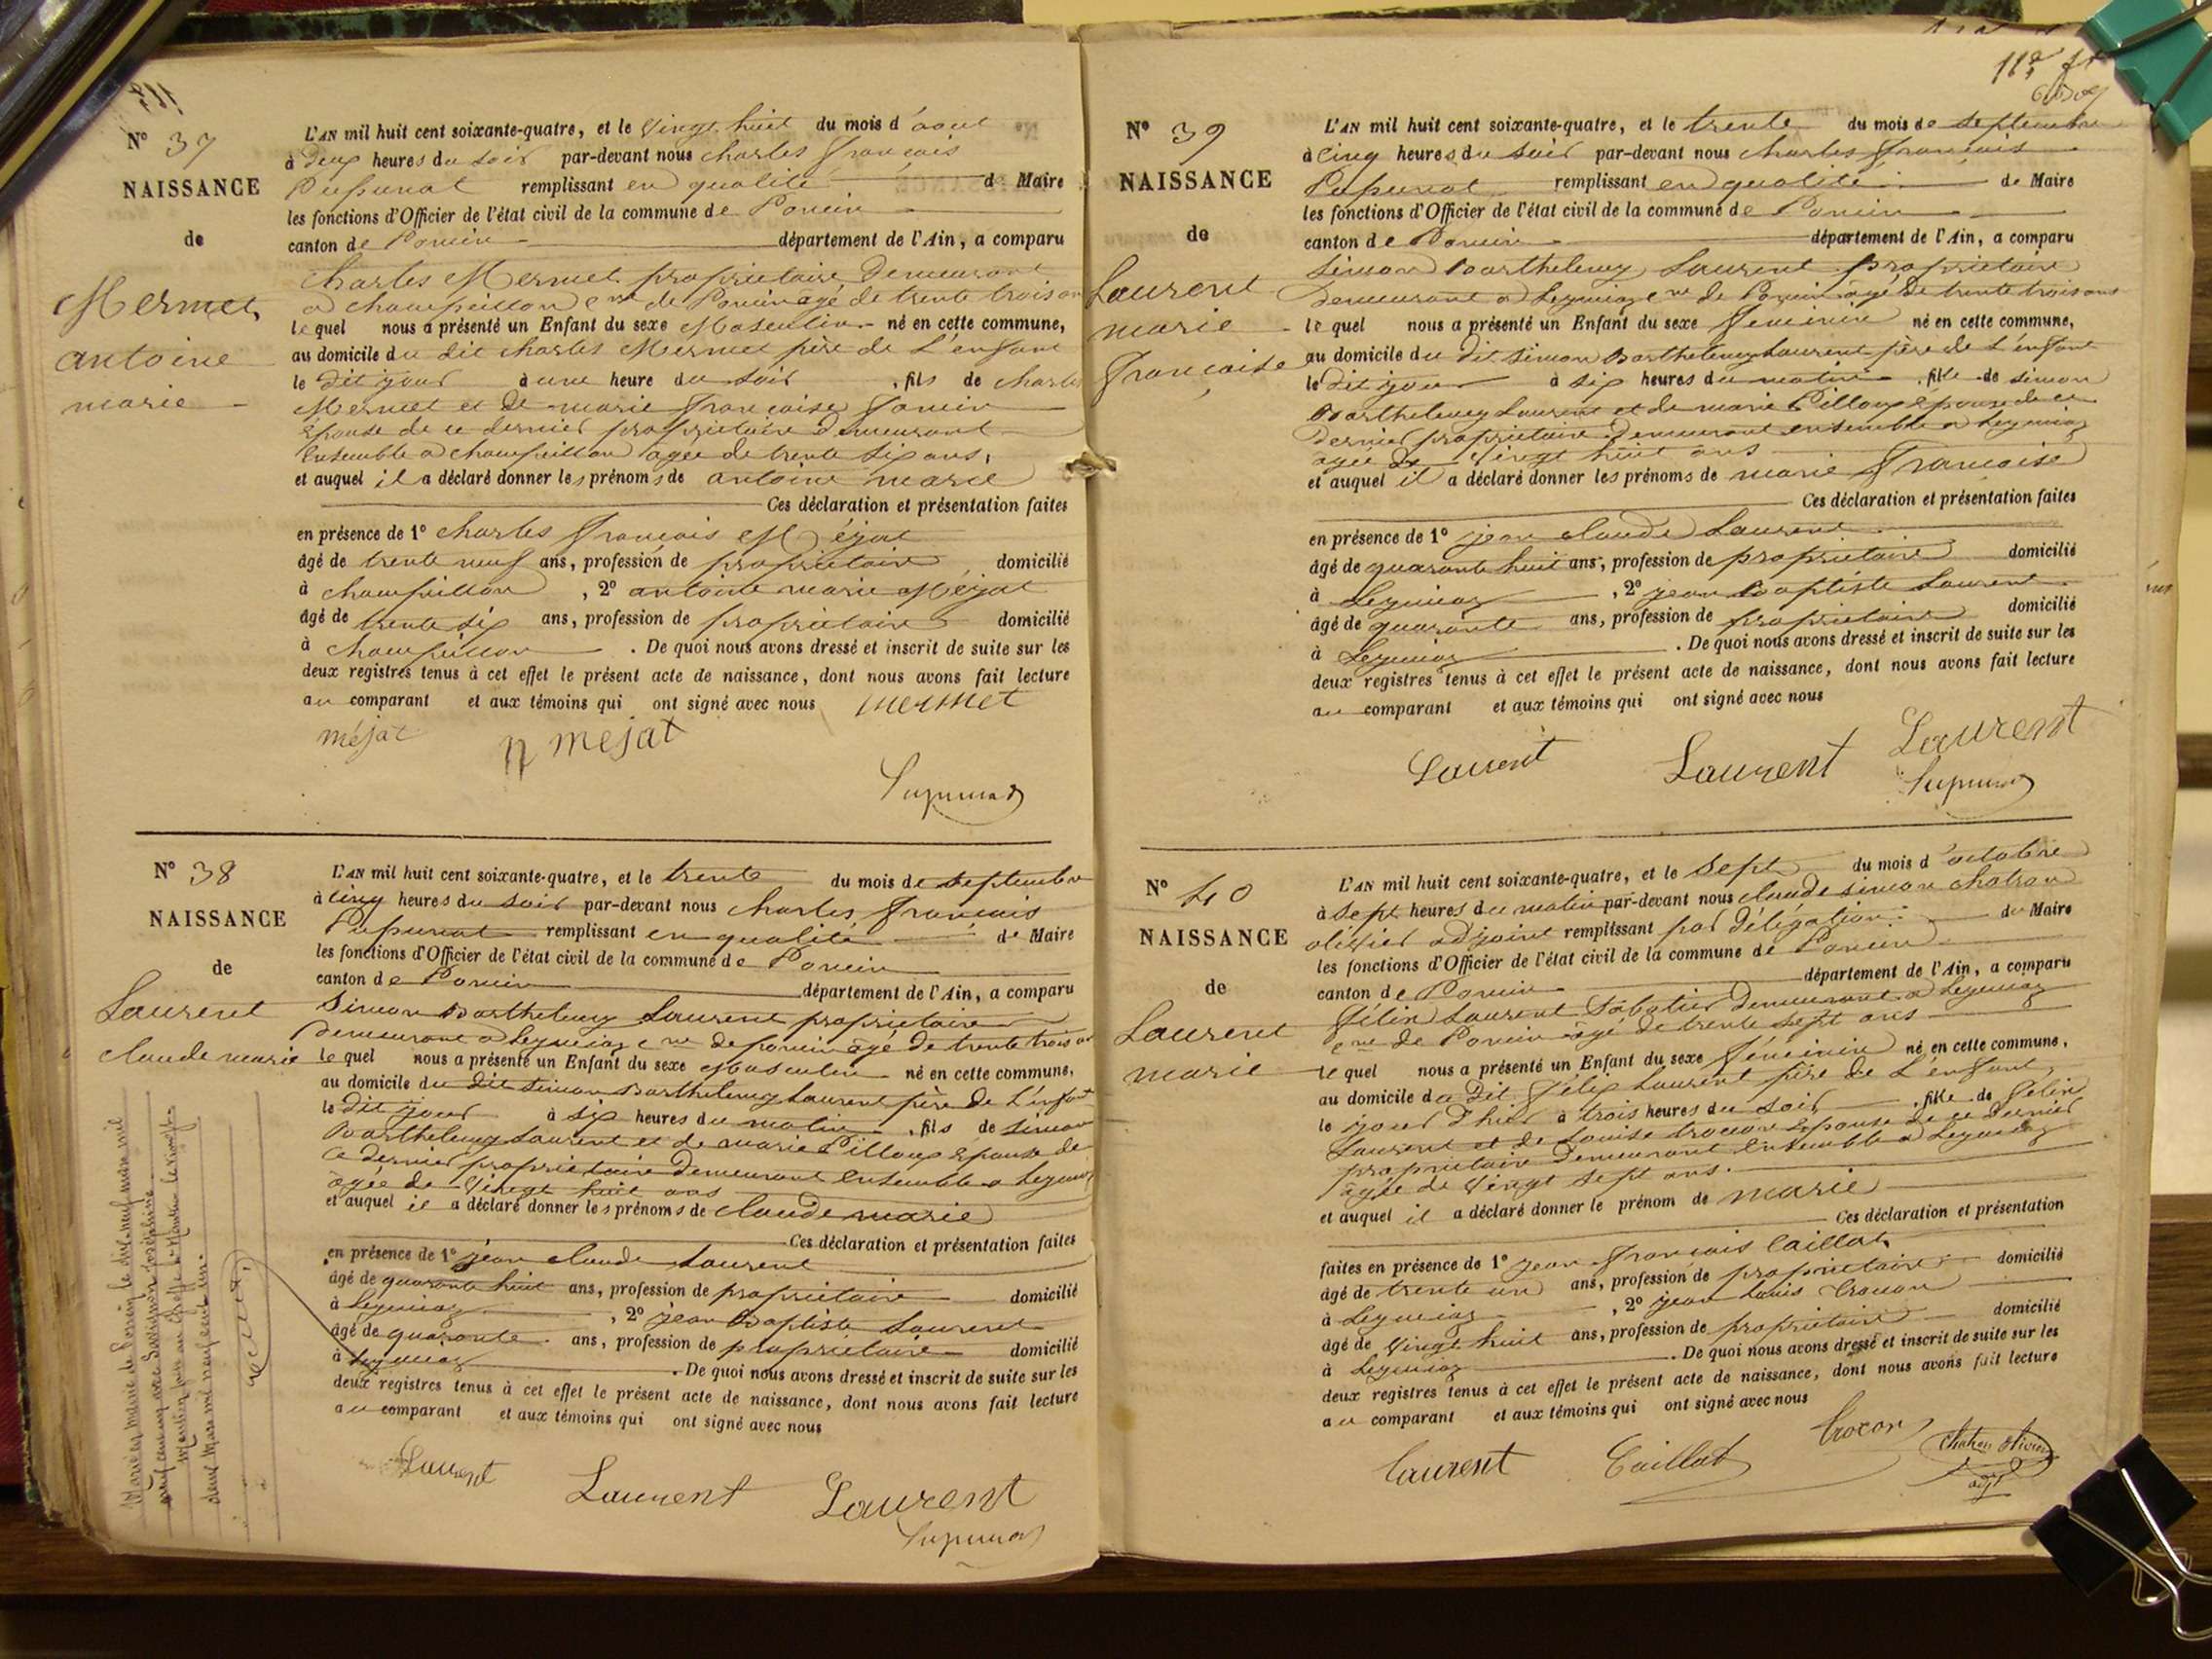 N° 37
NAISSANCE
de
Mermet
antoine
marie
L'AN mil huit cent soixante-quatre, et le Vingt huit du mois d'aout
à deux heures du soir par-devant nous charles françois
Pupunat remplissant en qualité de Maire
les fonctions d'Officier de l'état civil de la commune de Poncin
canton de Poncin département de l'Ain, a comparu
Charles Mermet propriétaire Demeurant
a champeillon cne de Poncin agé de trente trois ans
lequel nous a présenté un Enfant du sexe Masculin né en cette commune,
au domicile du dit charles Mermet père de L'enfant
le dit jour à une heure du soir , fils de charles
Mermet et de marie françoise Goncin
Epouse de ce dernier propriétaire Demeurant
Ensemble a champeillon agée de trente six ans,
et auquel il a déclaré donner les prénoms de antoine marie
Ces déclaration et présentation faites
en présence de 1° charles françois Méjat
âgé de trente neuf ans, profession de propriétaire domicilié
à champeillon , 2° antoine marie Méjat
âgé de trente six ans, profession de propriétaire domicilié
à champeillon . De quoi nous avons dressé et inscrit de suite sur les
deux registres tenus à cet effet le présent acte de naissance, dont nous avons fait lecture
au comparant et aux témoins qui ont signé avec nous mermet
méjat méjat
Pupunat
N° 38
NAISSANCE
de
Laurent
claude marie
L'AN mil huit cent soixante-quatre, et le trente du mois de septembre
à cinq heures du soir par-devant nous charles françois
Pupunat remplissant en qualité de Maire
les fonctions d'Officier de l'état civil de la commune de Poncin
canton de Poncin département de l'Ain, a comparu
Simon Barthelemy Laurent propriétaire
Demeurant a Leymiaz cne de poncin agé de trente trois ans
lequel nous a présenté un Enfant du sexe Masculin né en cette commune,
au domicile du dit simon Barthelemy Laurent père de L'enfant
le dit jour à six heures du matin , fils de simon
Barthelemy Laurent et de marie Pilloux Epouse de
ce dernier propriétaire Demeurant Ensemble a Leymiaz
agée de Vingt huit ans
et auquel il a déclaré donner les prénoms de claude marie
Ces déclaration et présentation faites
en présence de 1° jean claude Laurent
âgé de quarante huit ans, profession de propriétaire domicilié
à Leymiaz , 2° jean Baptiste Laurent
âgé de quarante ans, profession de propriétaire domicilié
à Leymiaz . De quoi nous avons dressé et inscrit de suite sur les
deux registres tenus à cet effet le présent acte de naissance, dont nous avons fait lecture
au comparant et aux témoins qui ont signé avec nous
Laurent Laurent Laurent
Pupunat
N° 39
NAISSANCE
de
Laurent
marie
françoise
L'AN mil huit cent soixante-quatre, et le trente du mois de septembre
à cinq heures du soir par-devant nous charles françois
Pupunat remplissant en qualité de Maire
les fonctions d'Officier de l'état civil de la commune de Poncin
canton de Poncin département de l'Ain, a comparu
Simon Barthelemy Laurent propriétaire
Demeurant a Leymiaz cne de Poncin agé de trente trois ans
lequel nous a présenté un Enfant du sexe féminin né en cette commune,
au domicile du dit simon Barthelemy Laurent père de L'enfant
le dit jour à six heures du matin , fille de simon
Barthelemy Laurent et de marie Pilloux Epouse de ce
Dernier propriétaire Demeurant ensemble a Leymiaz
agée de Vingt huit ans
et auquel il a déclaré donner les prénoms de marie françoise
Ces déclaration et présentation faites
en présence de 1° jean claude Laurent
âgé de quarante huit ans, profession de propriétaire domicilié
à Leymiaz , 2° jean Baptiste Laurent
âgé de quarante ans, profession de propriétaire domicilié
à Leymiaz . De quoi nous avons dressé et inscrit de suite sur les
deux registres tenus à cet effet le présent acte de naissance, dont nous avons fait lecture
au comparant et aux témoins qui ont signé avec nous
Laurent Laurent Laurent
Pupunat
N° 40
NAISSANCE
de
Laurent
marie
L'AN mil huit cent soixante-quatre, et le sept du mois d'octobre
à sept heures du matin par-devant nous claude simon chatron
olivier adjoint remplissant par délégation du Maire
les fonctions d'Officier de l'état civil de la commune de Poncin
canton de Poncin département de l'Ain, a comparu
félix Laurent Sabotier demeurant a Leymiaz
cne de Poncin agé de trente sept ans
lequel nous a présenté un Enfant du sexe féminin né en cette commune,
au domicile du Dit félix Laurent père de L'enfant
le jour d'hier à trois heures du soir , fille de félix
Laurent et de Louise trocon Epouse de ce dernier
propriétaire Demeurant ensemble a Leymiaz
agée de Vingt sept ans
et auquel il a déclaré donner le prénom de marie
Ces déclaration et présentation
faites en présence de 1° jean françois Caillat
âgé de trente un ans, profession de propriétaire domicilié
à Leymiaz , 2° jean Louis trocon
âgé de Vingt huit ans, profession de propriétaire domicilié
à Leymiaz . De quoi nous avons dressé et inscrit de suite sur les
deux registres tenus à cet effet le présent acte de naissance, dont nous avons fait lecture
au comparant et aux témoins qui ont signé avec nous
Laurent Caillat trocon Chatron Olivier
adjt